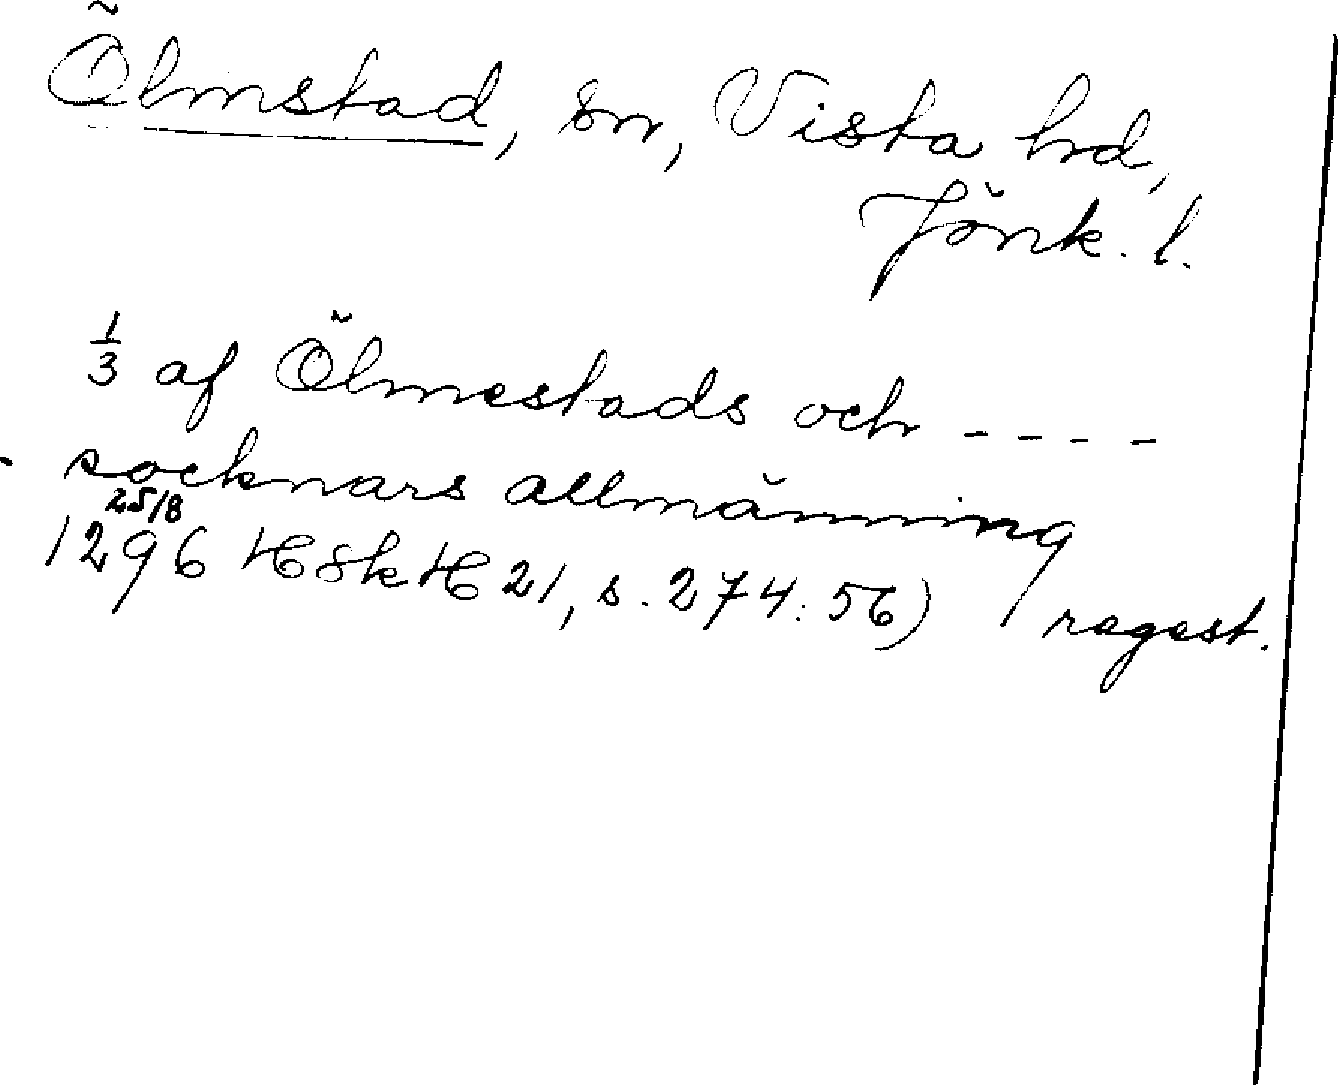 Ölmstad, sn, Vista hd,
Jönk. l.
1/3 af Ölmestads och ----
socknars allmänning
25/8
1296 HSkH 21, s. 274: 56) regest.